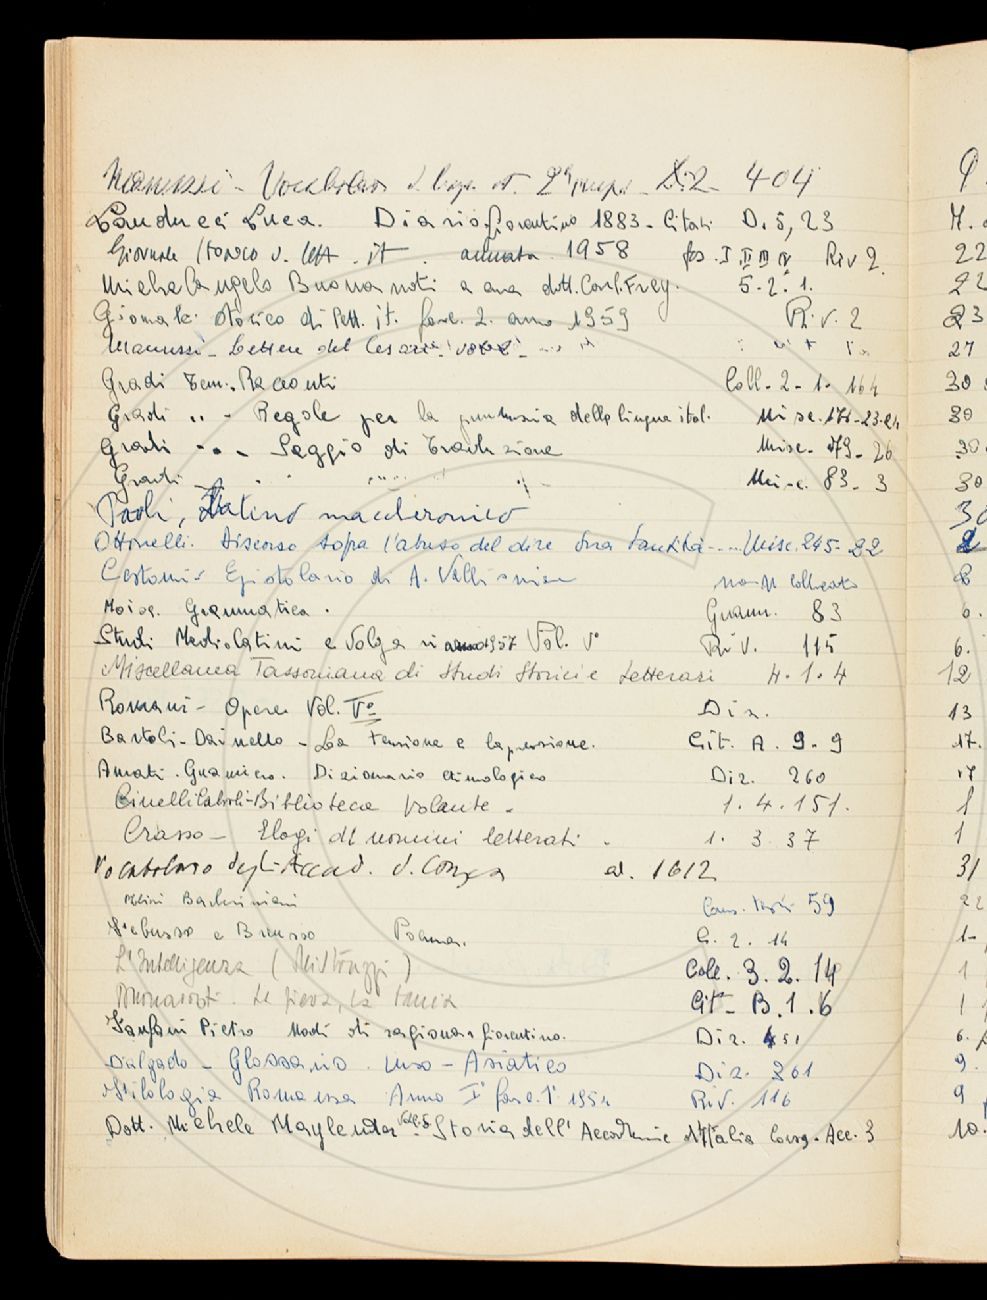 Manuzzi - Vocabolario d. ling. it. 2ª 404
Landucci Luca. Diario fiorentino 1883 - Citati D. 5, 23 7.
Giornale storico d. lett. it. annata 1958 fas. I II III IV Riv 2. 22
Michelangelo Buonarroti a cura dott. Carl. Frey. 5.2.1. 22
Giornale storico di lett. it. fasc. 2. anno 1959 Riv. 2 23
Manuzzi - Lettere del Cesari 27
Gradi Tem. Racconti Coll. - 2 - 1. 164 30
Gradi " - Regole per la pronunzia della lingua ital. Misc. 171-23-24 30
Gradi " - Saggio di Traduzione Misc. 79-26 30
Gradi - " " Misc. 83-3 30
Paoli, Latino maccheronico 30
Ottonelli. Discorso sopra l'abuso del dire Sua Santità - .... Misc. 245-22 2
Cestoni - Epistolario di A. Vallisnieri non collocato 2
Moise. Grammatica. Gramm. 83 6.
Studi Mediolatini e Volgari anno 1957 Vol. V° Riv. 115 6.
Miscellanea Tassoniana di Studi Storici e Letterari 4.1.4 12
Romani - Opere Vol. V° Diz. 13
Bartoli - Daniello - La tensione e la pressione. Cit. A. 9.9 17.
Amati. Guarnerio. Dizionario etimologico Diz. 260 17
Cinelli Calvoli - Biblioteca Volante - 1.4.151. 1
Crasso - Elogi di uomini letterati. 1. 3 37 1
Vocabolario degli Accad. d. Crusca ed. 1612 31
Barberiniani 59 22
Febusso e Breusso Poema. G. 2. 14 1-
L'Intelligenza (Mistruzzi) Coll. 3.2.14 1
Buonarroti. La fiera, la Tancia Cit - B.1.6 1
Fanfani Pietro Modi di ragionare fiorentino. Diz. 451 6.
Dalgado - Glossario. Luso - Asiatico Diz. 361 9.
Filologia Romanza Anno I° fasc. 1° 1954 Riv. 116 9
Dott. Michele Maylender Vol. 5° Storia dell'Accademie d'Italia Consg. Acc. 3 10.